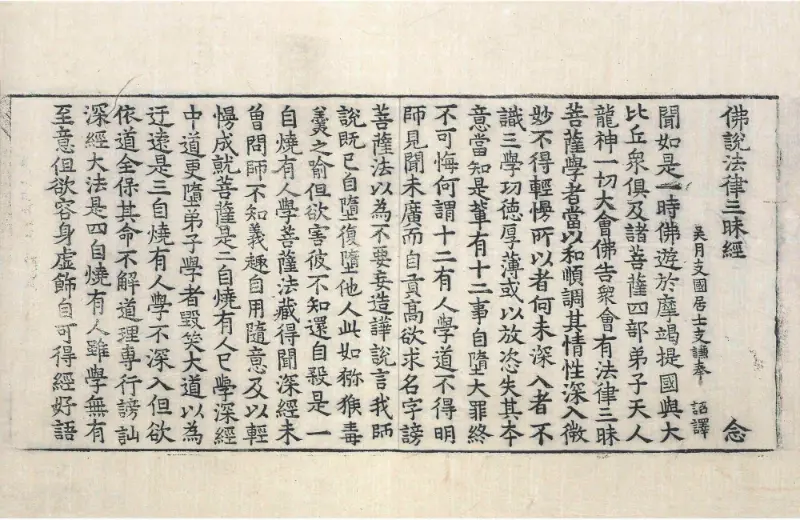 佛說法律三昧經 念
吳月支國居士支謙奉 詔譯
聞如是一時佛遊於摩竭提國與大
比丘衆俱及諸菩薩四部弟子天人
龍神一切大會佛告衆會有法律三昧
菩薩學者當以和順調其情性深入微
妙不得輕慢所以者何未深入者不
識三學功德厚薄或以放恣失其本
意當知是輩有十二事自墮大罪終
不可悔何謂十二有人學道不得明
師見聞未廣而自貢高欲求名字謗
菩薩法以為不要妄造譁說言我師
說既已自墮復墮他人此如猕猴毒
之喻但欲害彼不知還自殺是一
自燒有人學菩薩法藏得聞深經未
曾問師不知義趣自用隨意及以輕
慢成就菩薩是二自燒有人已學深經
中道更墮弟子學者毀笑大道以為
迂遠是三自燒有人學不深入但欲
依道全保其命不解道理專行謗訕
深經大法是四自燒有人雖學無有
至意但欲容身虛飾自可得經好語